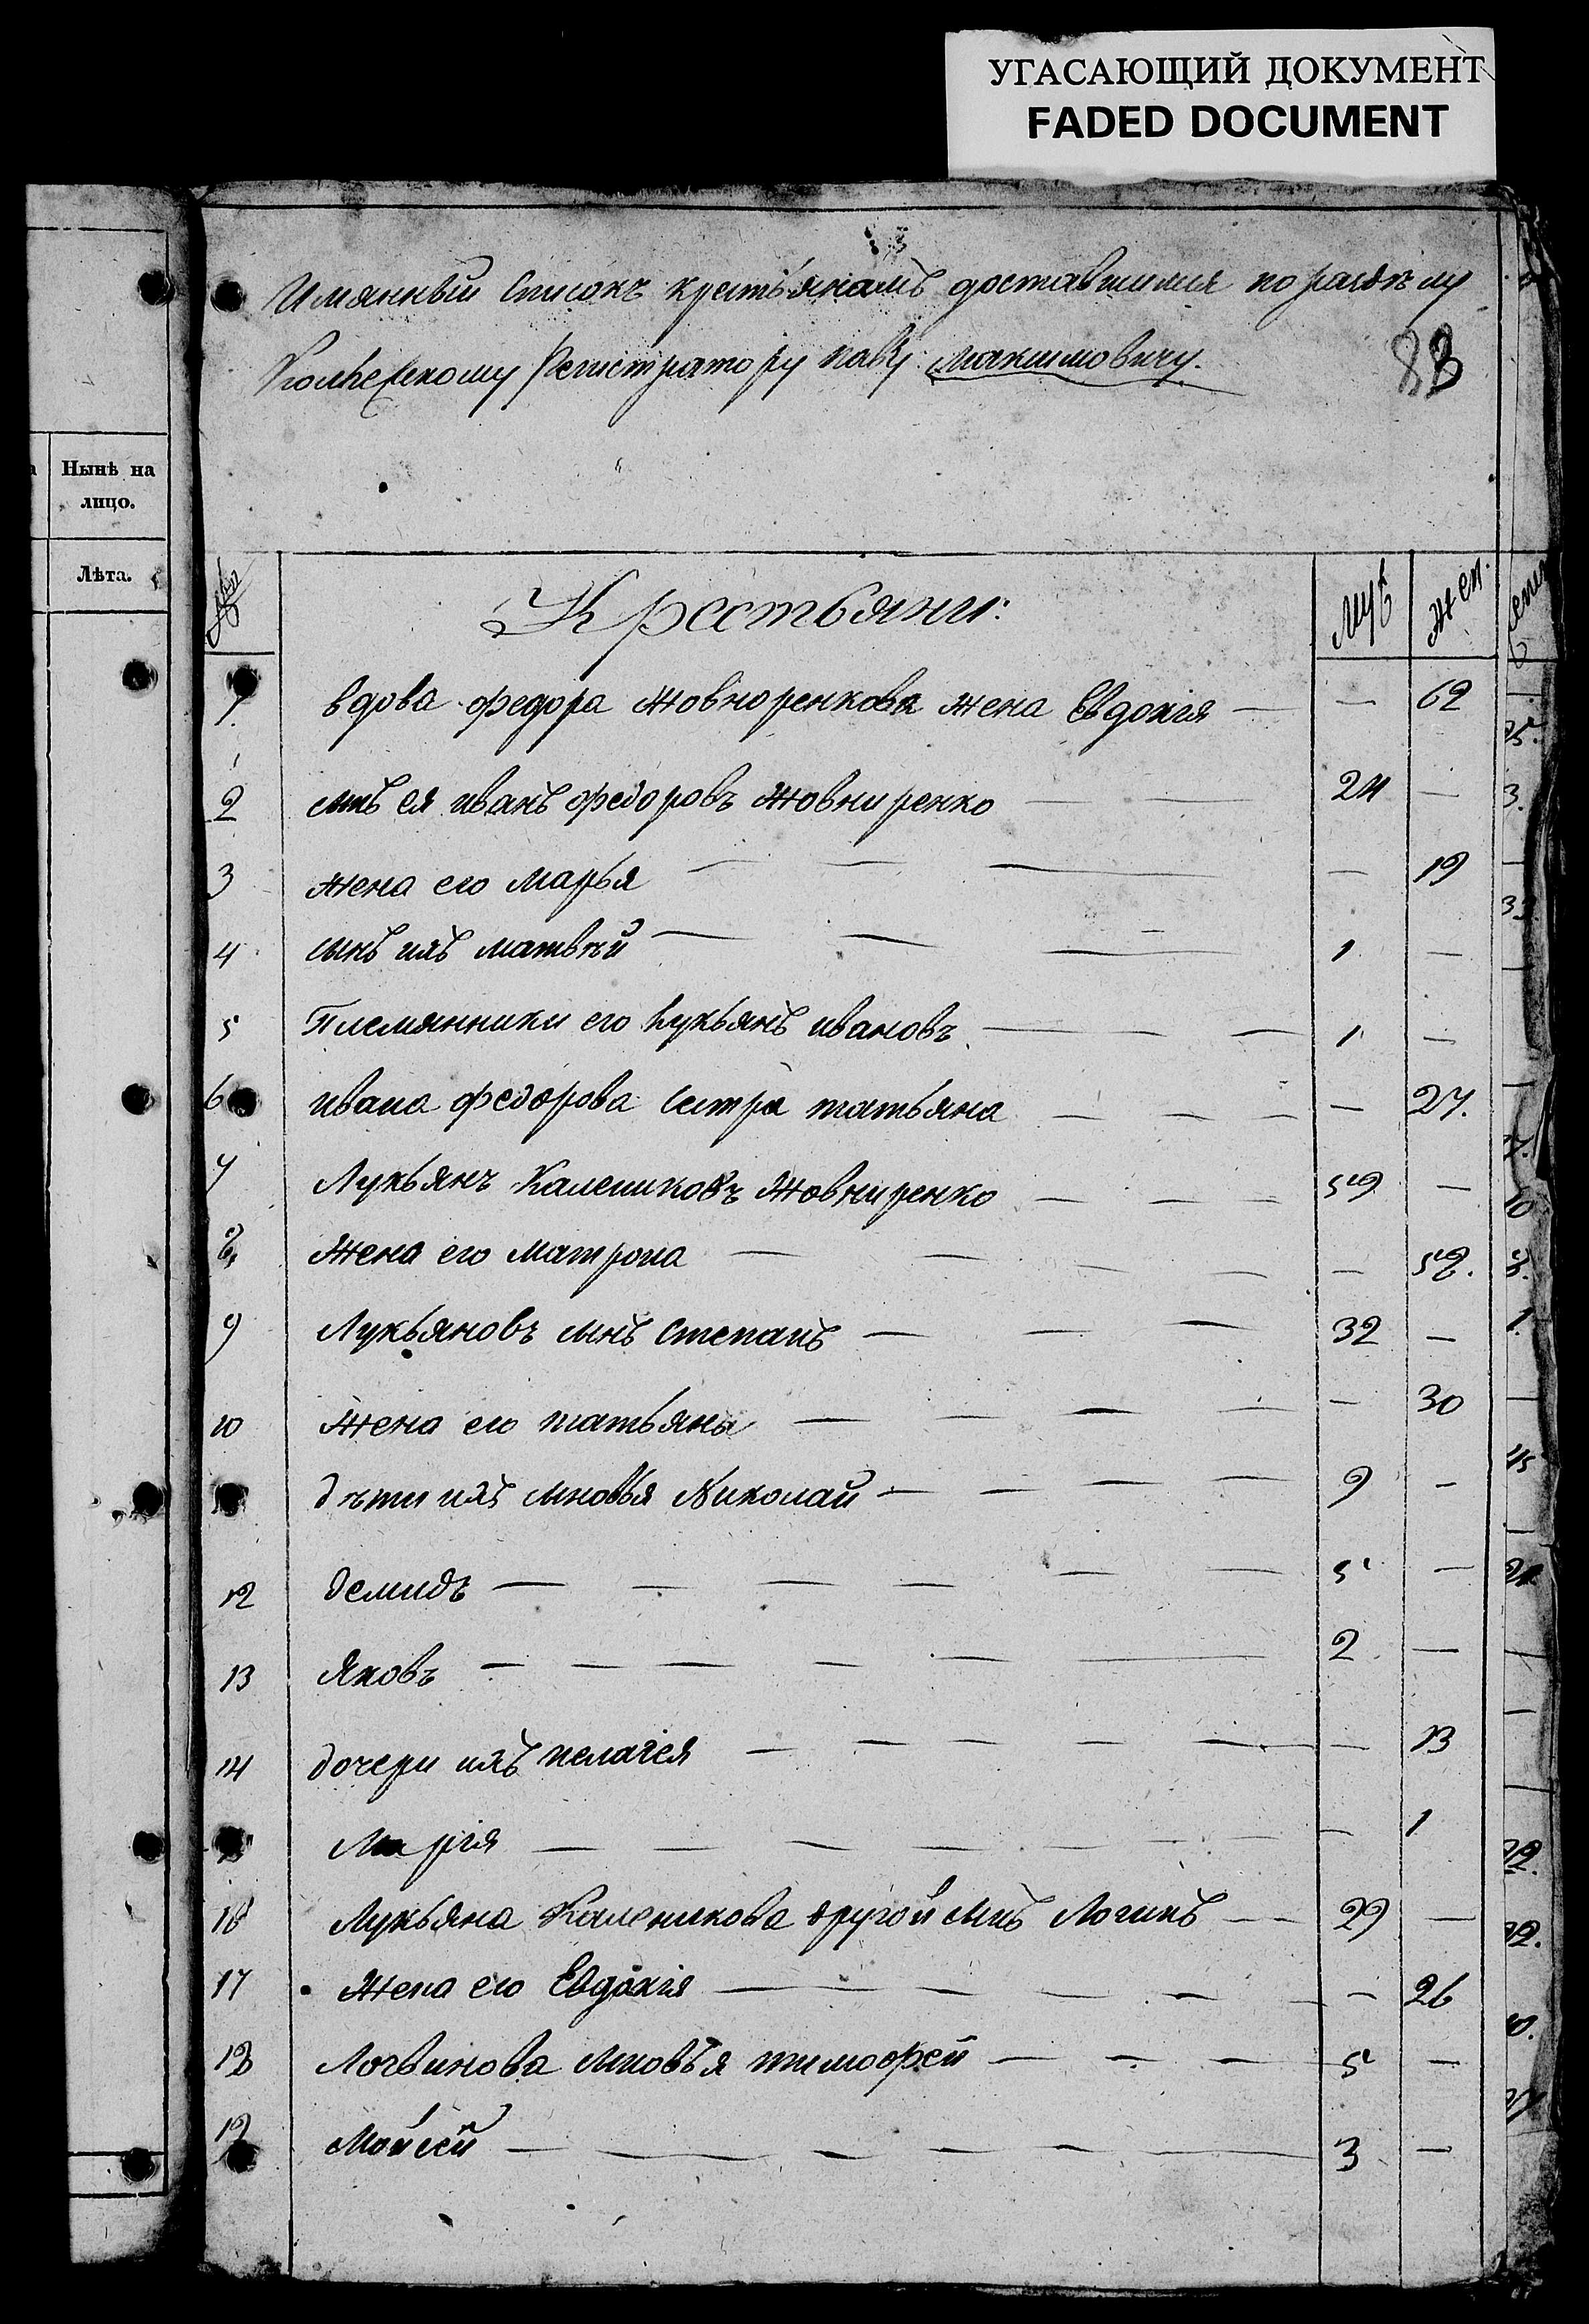 УГАСАЮЩИЙ ДОКУМЕНТ
FADED DOCUMENT
Имянный Списокъ крестьянамъ доставшимся по раздѣлу
Колѣежскому Регистратору Павлу Максимовичу.
83
Нынѣ на
лицо.
Лѣта.
№ Крестьяни: муж жен.
1 вдова федора Жовноренкова жена Евдокія — — 62
2 сынъ ея иванъ федоровъ Жовниренко — 24 —
3 жена его марья — — 19
4 сынъ ихъ матвѣй — 1 —
5 Племянники его Лукьянъ ивановъ — 1 —
6 ивана федорова сестра татьяна — — 27.
7 Лукьянъ Калениковъ Жовниренко — 59 —
8 Жена его матрона — — 52.
9 Лукьяновъ сынъ степанъ — 32 —
10 Жена его татьяна — — 30
дѣти ихъ сыновья Николай — 9 —
12 демидъ — 5 —
13 Яковъ — 2 —
14 дочери ихъ пелагея — — 13
Марія — — 1
16 Лукьяна Каленикова другой сынъ Логинъ — 29 —
17 Жена его Евдокія — — 26
18 Логвинова сыновья тимофей — 5 —
19 Мойсей — 3 —